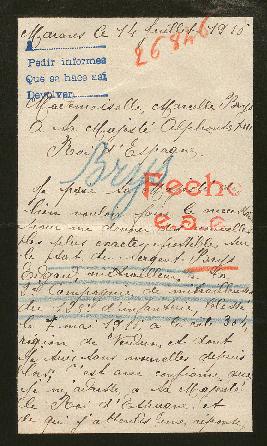 Marans le 14 Juillet 1916
26846
Pedir informes
Que se hace así
Devolver
Mademoiselle Marcelle Brys
A Sa Majesté Alphonse XIII
Roi d'Espagne
Brys
Fecha
e.s.a.
Je
bien vouloir pour
me donner des nouvelles
plus exactes possibles sur
le sort du Sergent Brys
Edmond
Compagnie de mitrailleuses
du d'infanterie, blessé
le 7 mai 1916, à la cote 304,
région de Verdun, et dont
je suis sans nouvelles depuis
lors, c'est avec confiance que
je m'adresse à Sa Majesté
le Roi d'Espagne, et
que j'attends une réponse